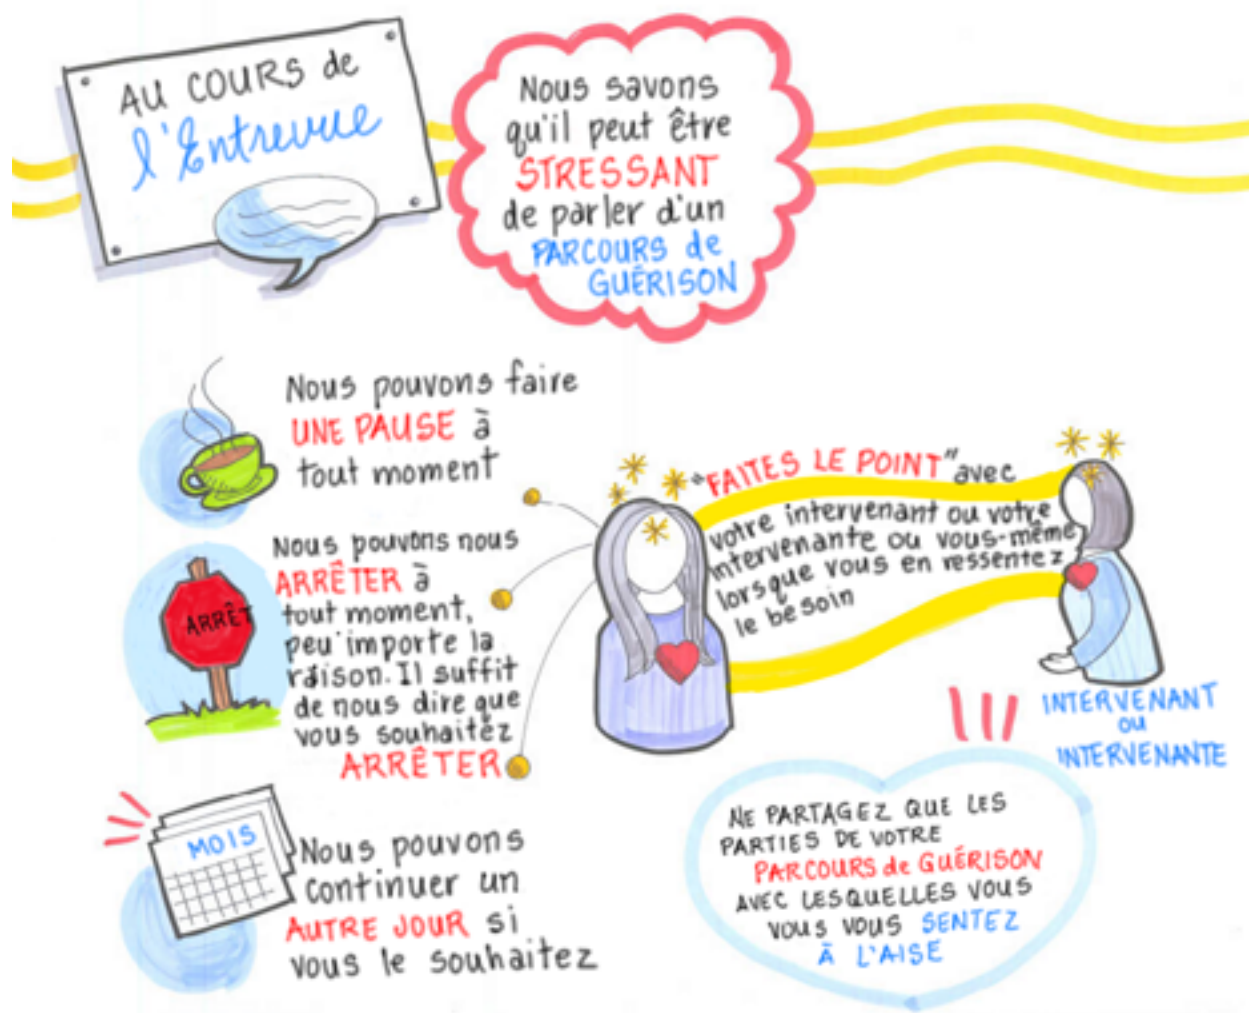 AU COURS de
l'Entrevue
Nous savons
qu'il peut être
STRESSANT
de parler d'un
PARCOURS de
GUÉRISON
Nous pouvons faire
UNE PAUSE à
tout moment
Nous pouvons nous
ARRÊTER à
tout moment,
peu importe la
raison. Il suffit
de nous dire que
vous souhaitez
ARRÊTER
ARRÊT
MOIS
Nous pouvons
continuer un
AUTRE JOUR si
vous le souhaitez
"FAITES LE POINT" avec
votre intervenant ou votre
intervenante ou vous-même
lorsque vous en ressentez
le besoin
INTERVENANT
OU
INTERVENANTE
NE PARTAGEZ QUE LES
PARTIES DE VOTRE
PARCOURS de GUÉRISON
AVEC LESQUELLES VOUS
VOUS VOUS SENTEZ
À L'AISE